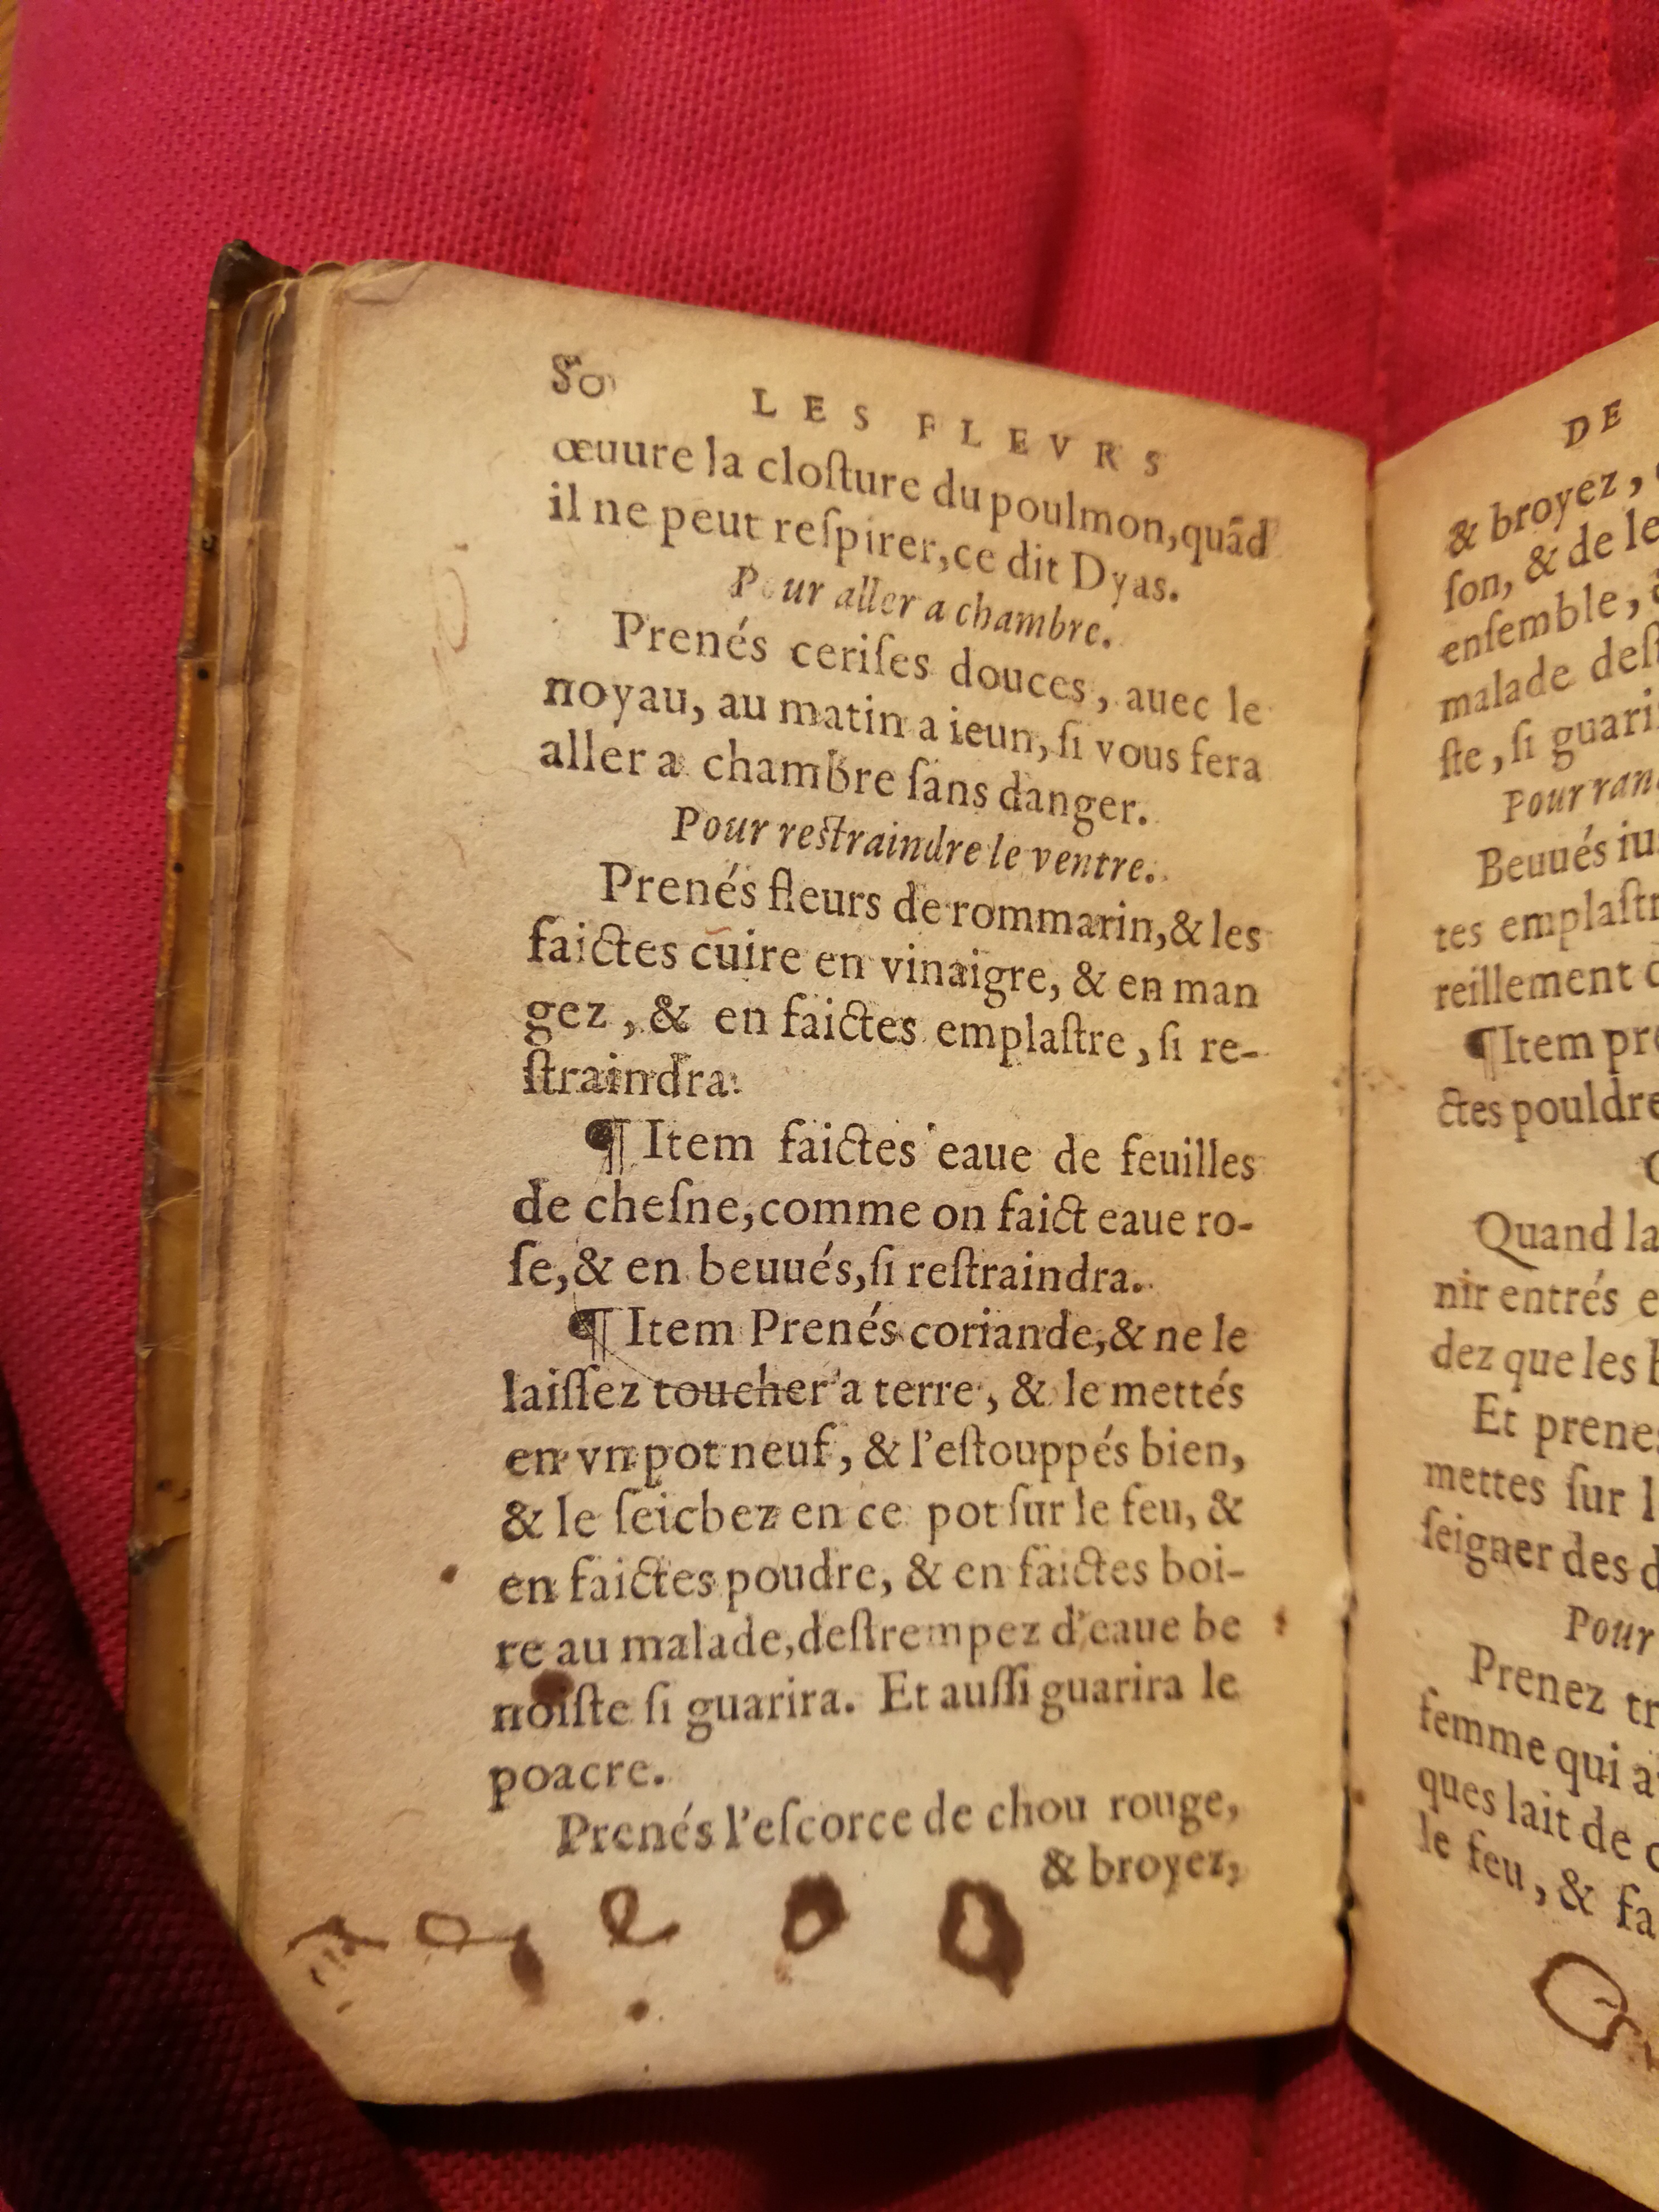 80 LES FLEVRS
œuure la cloſture du poulmon, quãd
il ne peut reſpirer, ce dit Dyas.
Pour aller a chambre.
Prenés ceriſes douces, auec le
noyau, au matin a ieun, ſi vous fera
aller a chambre ſans danger.
Pour reſtraindre le ventre.
Prenés fleurs de rommarin, & les
faictes cuire en vinaigre, & en man
gez, & en faictes emplaſtre, ſi re-
ſtraindra.
¶ Item faictes eaue de feuilles
de cheſne, comme on faict eaue ro-
ſe, & en beuués, ſi reſtraindra.
¶ Item Prenés coriande, & ne le
laiſſez toucher a terre, & le mettés
en vn pot neuf, & l'eſtouppés bien,
& le ſeicbez en ce pot ſur le feu, &
en faictes poudre, & en faictes boi-
re au malade, deſtrempez d'eaue be
noiſte ſi guarira. Et auſſi guarira le
poacre.
Prenés l'eſcorce de chou rouge,
& broyez,
DE
& broyez,
ſon, & de
enſemble,
malade
ſte, ſi
Pour
Beuués
tes
reillement
¶ Item
ctes pouldre
Quand la
nir entrés
dez que les
Et
mettes ſur
ſeigner des
Pour
Prenez
femme qui
ques lait de
le feu, &